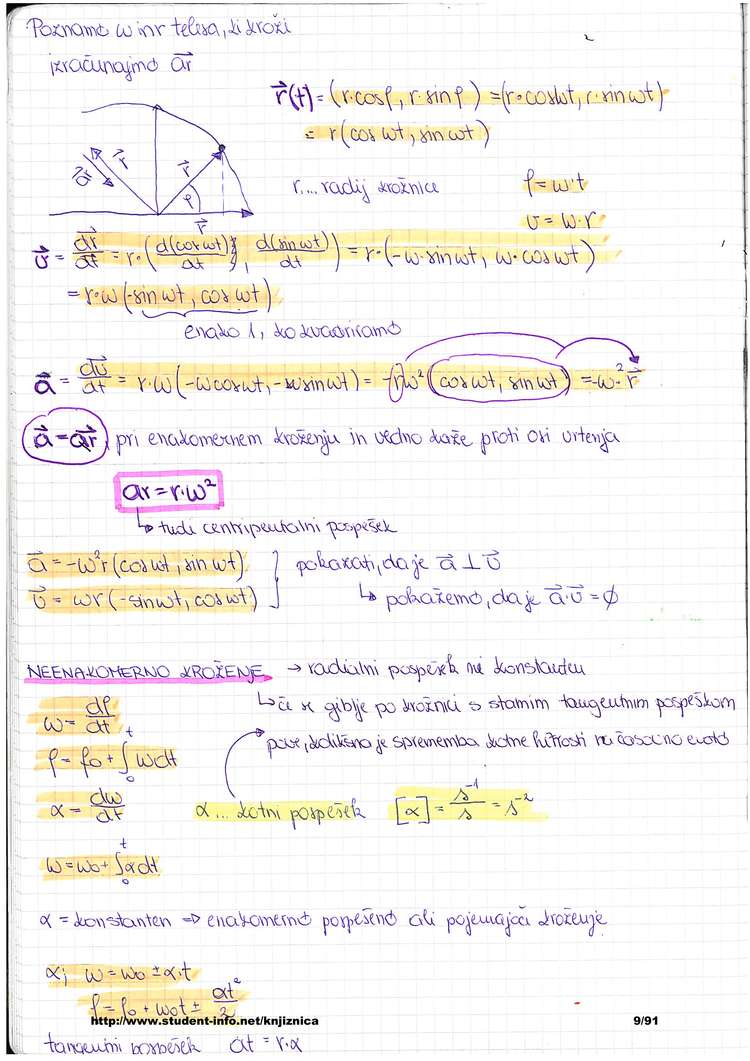 Poznamo ω in r telesa, ki kroži
izračunajmo a⃗r
r⃗(t) = (r·cosφ, r·sinφ) = (r·cosωt, r·sinωt)
= r(cos ωt, sin ωt)
a⃗r r⃗ r⃗ φ
r⃗
r... radij krožnice
φ = ω·t
v = ω·r
v⃗ = dr⃗/dt = r·(d(cosωt)/dt, d(sinωt)/dt) = r·(-ω·sinωt, ω·cosωt)
= r·ω(-sinωt, cosωt)
enako 1, ko kvadriramo
a⃗ = dv⃗/dt = r·ω(-ωcosωt, -ωsinωt) = -rω²(cosωt, sinωt) = -ω²·r⃗
a⃗ = a⃗r pri enakomernem kroženju in vedno kaže proti osi vrtenja
ar = r·ω²
↳ tudi centripentalni pospešek
a⃗ = -ω²r(cosωt, sin ωt)
v⃗ = ωr(-sinωt, cosωt)
pokazati, da je a⃗ ⊥ v⃗
↳ pokažemo, da je a⃗·v⃗ = ∅
NEENAKOMERNO KROŽENJE → radialni pospešek ni konstanten
↳ če se giblje po krožnici s stalnim tangentnim pospeškom
ω = dφ/dt
pove, kolikšna je sprememba kotne hitrosti na časovno enoto
φ = φ0 + ∫₀ᵗ ωdt
α = dω/dt
α... kotni pospešek [α] = s⁻¹/s = s⁻²
ω = ω0 + ∫₀ᵗ αdt
α = konstanten ⇒ enakomerno pospešeno ali pojemajoče kroženje
α; ω = ω0 ± α·t
φ = φ0 + ω0t ± αt²/2
http://www.student-info.net/knjiznica 9/91
tangentni pospešek at = r·α